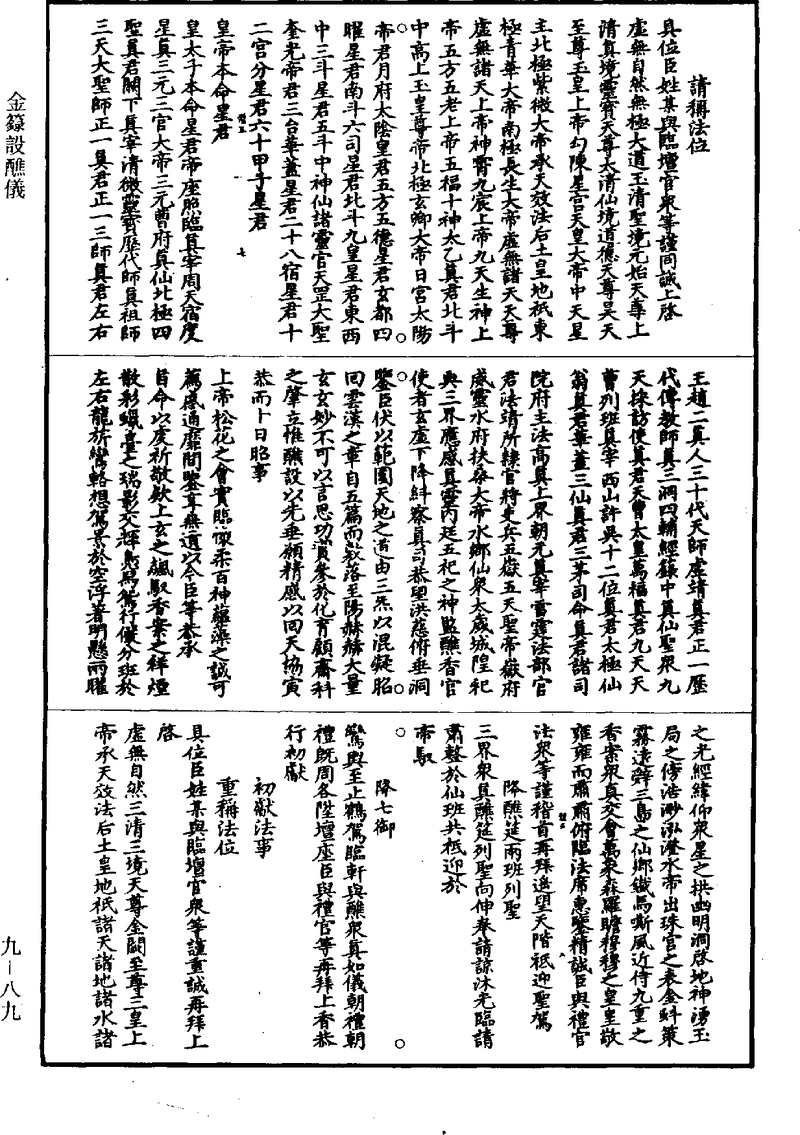 請稱法位
具位臣姓某與臨壇官衆等謹同誠上啓
虛無自然無極大道玉清聖境元始天尊上
清真境靈寶天尊太清仙境道德天尊昊天
至尊玉皇上帝勾陳星宮天皇大帝中天星
主北極紫微大帝承天效法后土皇地祇東
極青華大帝南極長生大帝虛無諸天天尊
虛無諸天上帝神霄九宸上帝九天生神上
帝五方五老上帝五福十神太乙真君北斗
中高上玉皇尊帝北極玄卿大帝日宮太陽
帝君月府太陰皇君五方五德星君玄都四
曜星君南斗六司星君北斗九皇星君東西
中三斗星君五斗中神仙諸靈官天罡大聖
奎光帝君三台華蓋星君二十八宿星君十
二宮分星君六十甲子星君
皇帝本命星君
皇太子本命星君帝座照臨真宰周天宿度
星真三元三官大帝三元曹府真仙北極四
聖真君闕下真宰清微靈寶歷代師真祖師
三天大聖師正一真君正一三師真君左右
王趙二真人三十代天師虛靖真君正一歷
代傳教師真三洞四輔經籙中真仙聖衆九
天採訪使真君天曹太皇萬福真君九天天
曹列班真宰西山許吳十二位真君太極仙
翁真君華蓋三仙真君三茅司命真君諸司
院府主法高真上界朝元真宰雷霆法部官
君法靖所隸官將吏兵五嶽五天聖帝嶽府
威靈水府扶桑大帝水鄉仙衆太歲城隍祀
典三界應感真靈內廷五祀之神監醮香官
使者玄虛下降糾察真司恭望洪慈俯垂洞
鑒臣伏以範圍天地之道由三炁以混凝昭
回雲漢之章自五篇而敷落至陽赫赫大量
玄玄妙不可以言思功實參於化育顧齋科
之肇立惟醮設以先垂願精感以同天協寅
恭而卜日昭事
上帝松花之會實臨懷柔百神蘋藻之誠可
薦感通靡間鑒享無遺以今臣等恭承
旨命以度祈敬欽上玄之飆馭香案之祥煙
散彩蠟臺之瑞影交輝鳧舄鴛行儼分班於
左右龍旂鸞輅想駕景於空浮著明懸兩曜
之光經緯仰衆星之拱幽明洞啓地神湧玉
局之傍浩渺泓澄水帝出珠宮之表金蚪策
霧遠辭三島之仙鄉鐵馬嘶風近侍九重之
香案衆真交會萬象森羅瞻穆穆之皇皇敬
雍雍而肅肅俯臨法席惠鑒精誠臣與禮官
法衆等謹稽首再拜遙望天階祗迎聖駕
降醮筵兩班列聖
三界衆真醮筵列聖向伸奉請諒沐光臨請
肅整於仙班共祗迎於
帝馭
降七御
鸞輿至止鶴駕臨軒與醮衆真如儀朝禮朝
禮既周各陞壇座臣與禮官等再拜上香恭
行初獻
初獻法事
重稱法位
具位臣姓某與臨壇官衆等謹重誠再拜上
啓
虛無自然三清三境天尊金闕至尊二皇上
帝承天效法后土皇地祇諸天諸地諸水諸
金籙設醮儀
九－八九